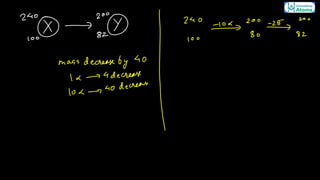 240 X 100 → 200 Y 82
mass decrease by 40
1α → 4 decrease
10α → 40 decrease
240 100 -10α → 200 80 -2β → 200 82